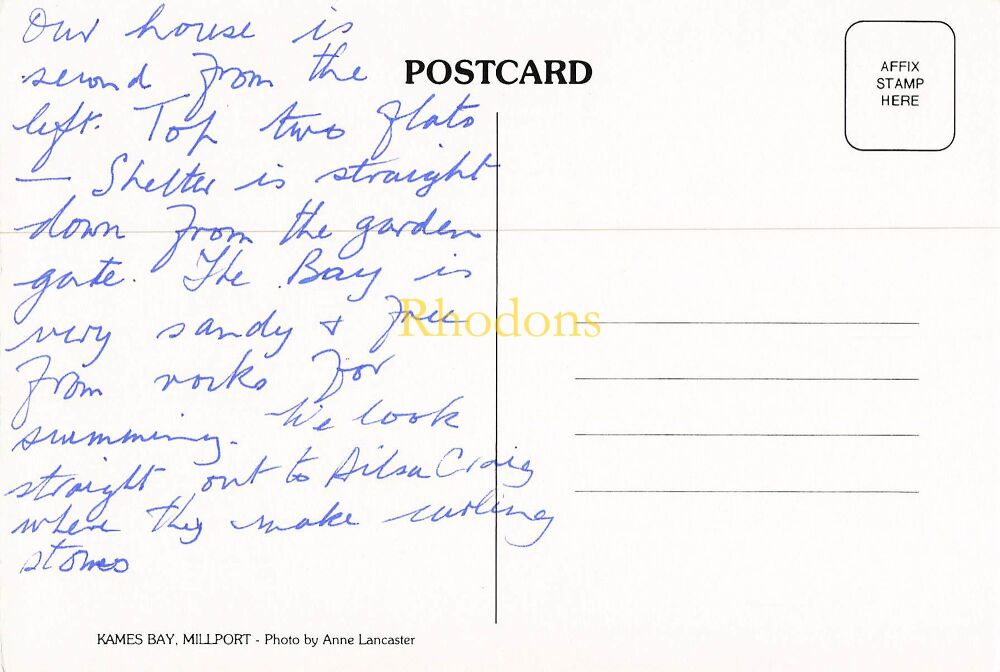 Our house is
second from the
left. Top two flats
— Shelter is straight
down from the garden
gate. The Bay is
very sandy & free
from rocks for
swimming. We look
straight out to Ailsa Craig
where they make curling
stones
POSTCARD
AFFIX
STAMP
HERE
Rhodons
KAMES BAY, MILLPORT - Photo by Anne Lancaster